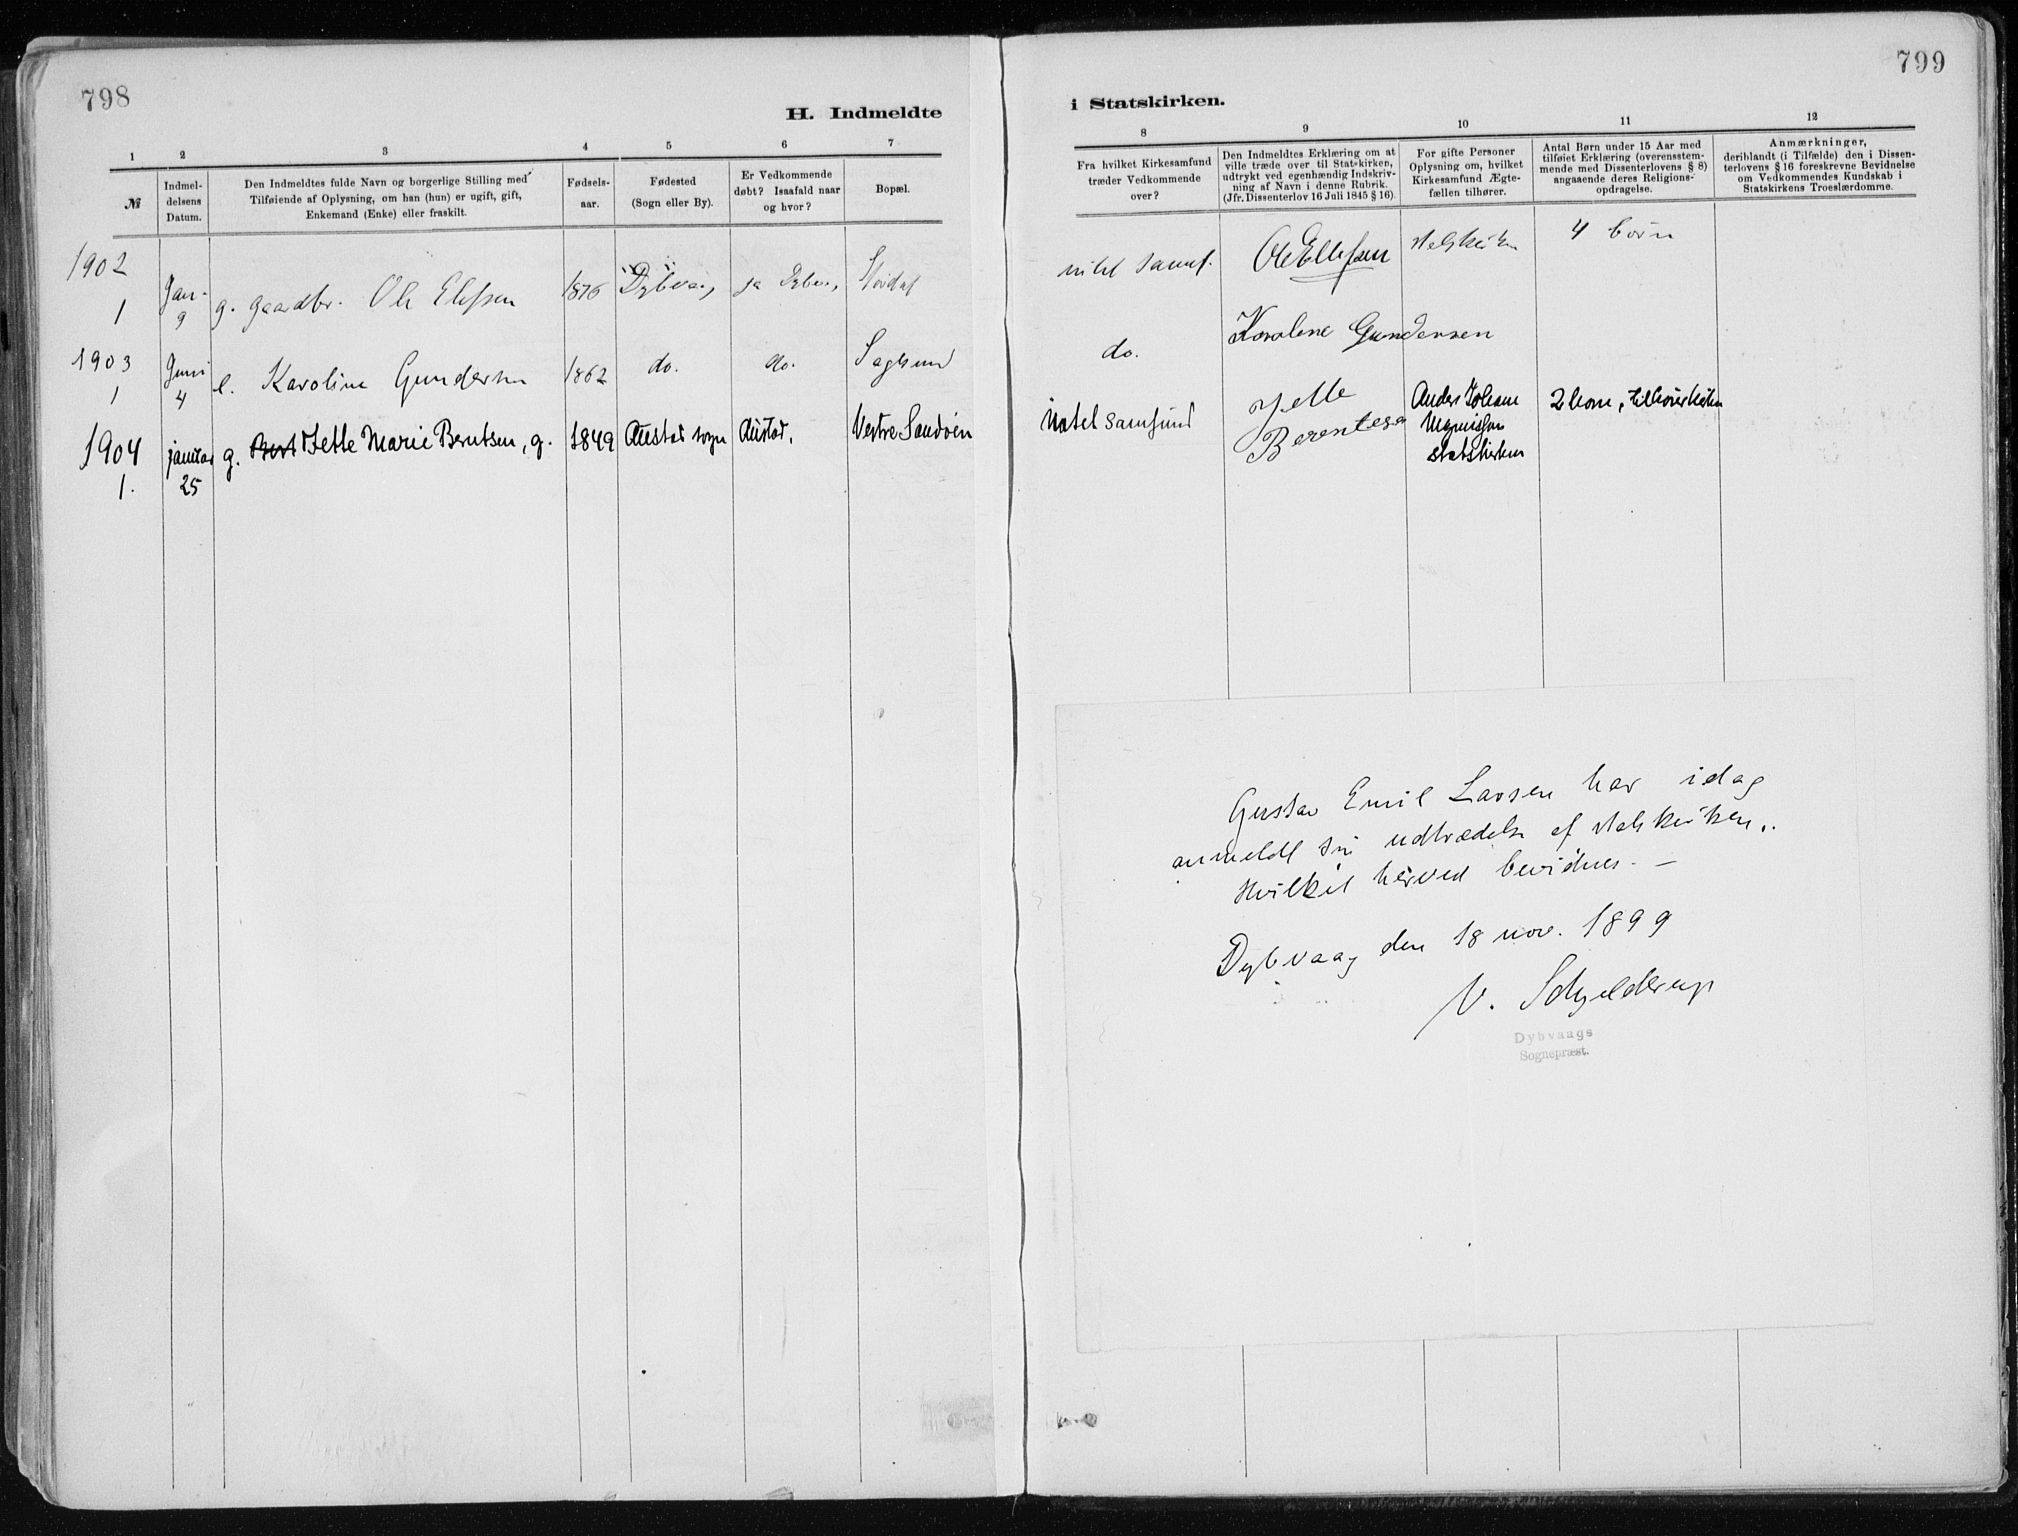 798
H. Indmeldte
1 2 3 4 5 6 7
№
Indmel-
delsens
Datum.
Den Indmeldtes fulde Navn og borgerlige Stilling med
Tilføiende af Oplysning, om han (hun) er ugift, gift,
Enkemand (Enke) eller fraskilt.
Fødsels-
aar.
Fødested
(Sogn eller By).
Er Vedkommende
døbt? Isaafald naar
og hvor?
Bopæl.
1902
1 Jan. 9 g. gaardbr. Ole Ellefsen 1876 Dybvaag ja Dybv.,
1903
1 Juni 4 e. Karoline Gundersen 1862 do. do. Sagesund
1904
1. januar 25 g. Jette Marie Berntsen, g. 1849 Austad sogn Austad, Vestre Sandøen
799
i Statskirken.
8 9 10 11 12
Fra hvilket Kirkesamfund
træder Vedkommende
over?
Den Indmeldtes Erklæring om at
ville træde over til Statskirken,
udtrykt ved egenhændig Indskriv-
ning af Navn i denne Rubrik.
(Jfr. Dissenterlov 16 Juli 1845 § 16).
For gifte Personer
Oplysning om, hvilket
Kirkesamfund Ægte-
fællen tilhører.
Antal Børn under 15 Aar med
tilføiet Erklæring (overensstem-
mende med Dissenterlovens § 8)
angaaende deres Religions-
opdragelse.
Anmærkninger,
deriblandt (i Tilfælde) den i Dissen-
terlovens § 16 foreskrevne Bevidnelse
om Vedkommendes Kundskab i
Statskirkens Troeslærdomme.
intet samf. Ole Ellefsen statskirken 4 børn
do. Karolene Gundersen
intet samfund Jette Anders Johan 2 børn,
Berentesen
statskirken
Gustav Emil Larsen har idag
anmeldt sin udtrædelse af statskirken,.
Hvilket herved bevidnes. —
Dybvaag den 18 nov. 1899
V. Schjelderup
Dybvaags
Sognepræst.